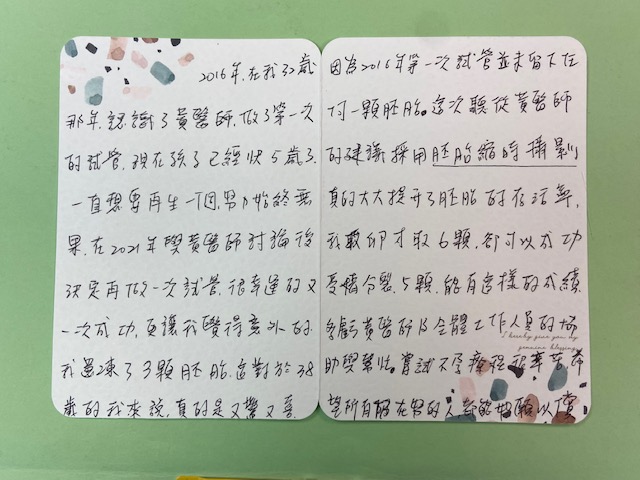 2016年,在我32歲
那年,認識了黃醫師,做了第一次
的試管,現在孩子已經快5歲了,
一直想要再生一個,努力始終無
果,在2021年與黃醫師討論後
決定再做一次試管,很幸運的又
一次成功,更讓我覺得意外的,
我還凍了3顆胚胎,這對於38
歲的我來說,真的是又驚又喜,
因為2016年第一次試管並未留下任
何一顆胚胎。這次聽從黃醫師
的建議採用胚胎縮時攝影
真的大大提升了胚胎的存活率,
我取卵才取6顆,卻可以成功
受精分裂5顆,能有這樣的成績
多虧黃醫師及全體工作人員的協
I hereby give you my
genuine blessings
助與幫忙。嘗試不孕療程很辛苦,希
望所有都在努力的人都能如願以償